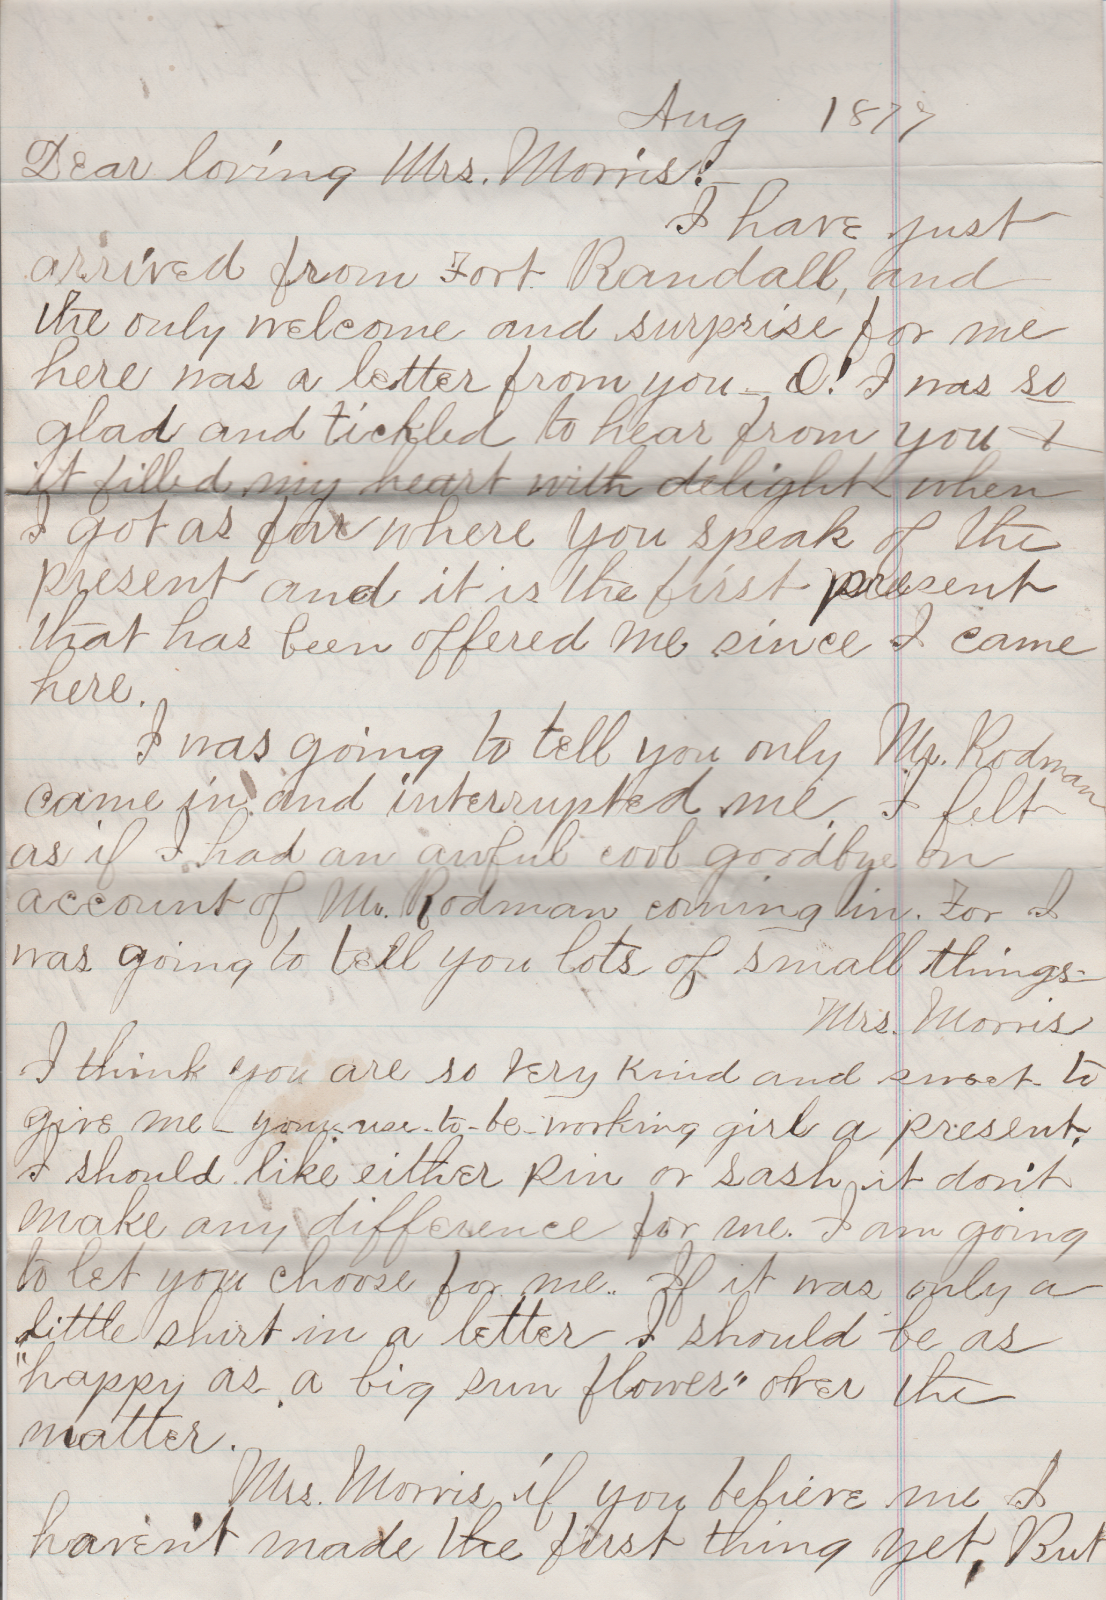 Aug 1879
Dear loving Mrs. Morris!
I have just
arrived from Fort Randall, and
the only welcome and surprise for me
here was a letter from you - O! I was so
glad and tickled to hear from you &
it filled my heart with delight when
I got as far where you speak of the
present and it is the first present
that has been offered me since I came
here.
I was going to tell you only Mr. Rodman
came in and interrupted me. I felt
as if I had an awful cool goodbye on
account of Mr. Rodman coming in. For I
was going to tell you lots of small things-
Mrs. Morris
I think you are so very kind and sweet to
give me - your-use-to-be-working girl a present.
I should like either pin or sash it don't
make any difference for me. I am going
to let you choose for me. If it was only a
little shirt in a letter I should be as
"happy as a big sun flower" over the
matter.
Mrs. Morris, if you believe me I
haven't made the first thing yet, But